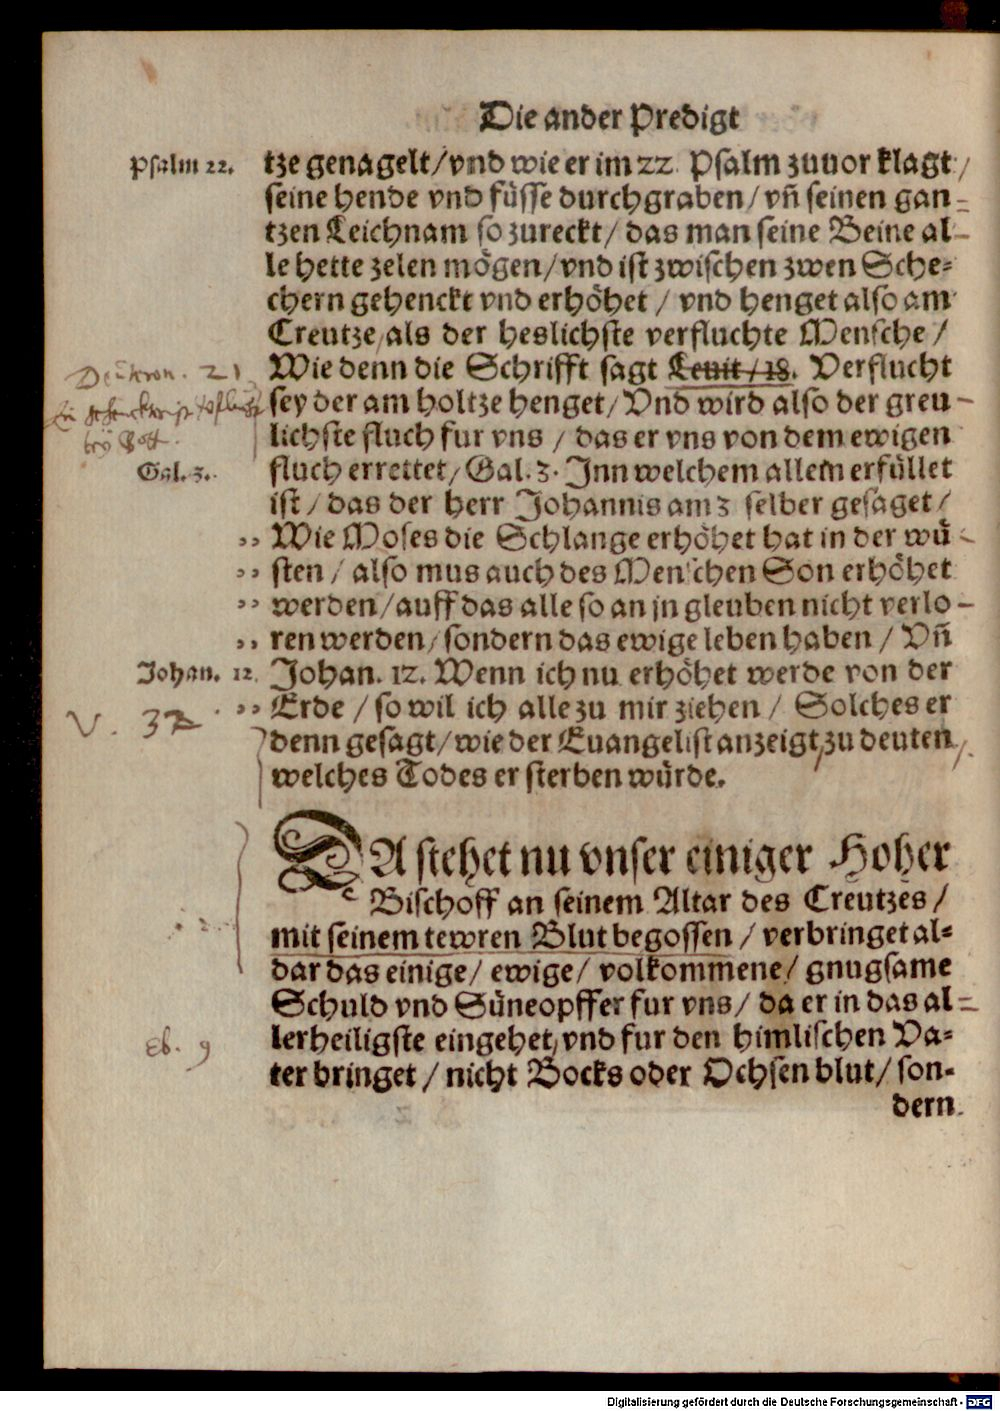 Die ander Predigt
Psalm 22. tze genagelt/vnd wie er im 22. Psalm zuuor klagt/
seine hende vnd füsse durchgraben/vñ seinen gan-
tzen Leichnam so zureckt/das man seine Beine al-
le hette zelen mögen/vnd ist zwischen zwen Sche-
chern gehenckt vnd erhöhet/vnd henget also am
Creutze/als der heslichste verfluchte Mensche/
Deuteron. 21
Wie denn die Schrifft sagt Leuit/18. Verflucht
sey der am holtze henget/Vnd wird also der greu-
bey Gott.
lichste fluch fur vns/das er vns von dem ewigen
Gal. 3. fluch errettet/Gal. 3. Jnn welchem allem erfüllet
ist/das der herr Johannis am 3 selber gesaget/
,, Wie Moses die Schlange erhöhet hat in der wü-
,, sten/also mus auch des Menschen Son erhöhet
,, werden/auff das alle so an jn gleuben nicht verlo-
,, ren werden/sondern das ewige leben haben/Vñ
Johan. 12. Johan. 12. Wenn ich nu erhöhet werde von der
V. 32
,, Erde/so wil ich alle zu mir ziehen/Solches er
denn gesagt/wie der Euangelist anzeigt/zu deuten/
welches Todes er sterben würde.
DA stehet nu vnser einiger Hoher
Bischoff an seinem Altar des Creutzes/
mit seinem tewren Blut begossen/verbringet al-
dar das einige/ewige/volkommene/gnugsame
Schuld vnd Süneopffer fur vns/da er in das al-
Eb. 9
lerheiligste eingehet/vnd fur den himlischen Va-
ter bringet/nicht Bocks oder Ochsen blut/son-
dern.
Digitalisierung gefördert durch die Deutsche Forschungsgemeinschaft - DFG